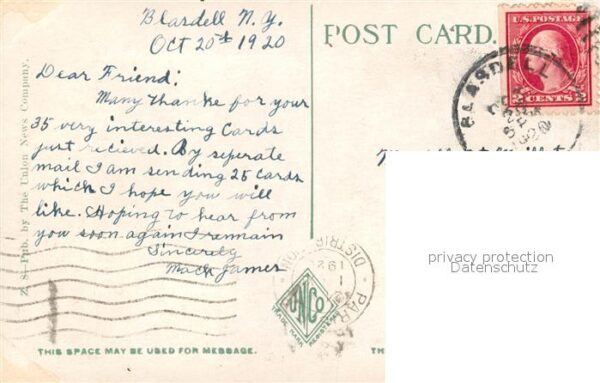 Blasdell N.Y.
Oct 20th 1920
Dear Friend:
Many Thanks for your
35 very interesting Cards
just recieved. By seperate
mail I am sending 25 cards
which I hope you will
like. Hoping to hear from
you soon again I remain
Sincerely
Mack James
POST CARD.
U.S. POSTAGE
2 CENTS 2
BLASDELL
Z. S.-Pub. by The Union News Company.
privacy protection
Datenschutz
DISTRIB
PAR
1921
UNCO
TRADE MARK
REGISTERED
THIS SPACE MAY BE USED FOR MESSAGE.
TH